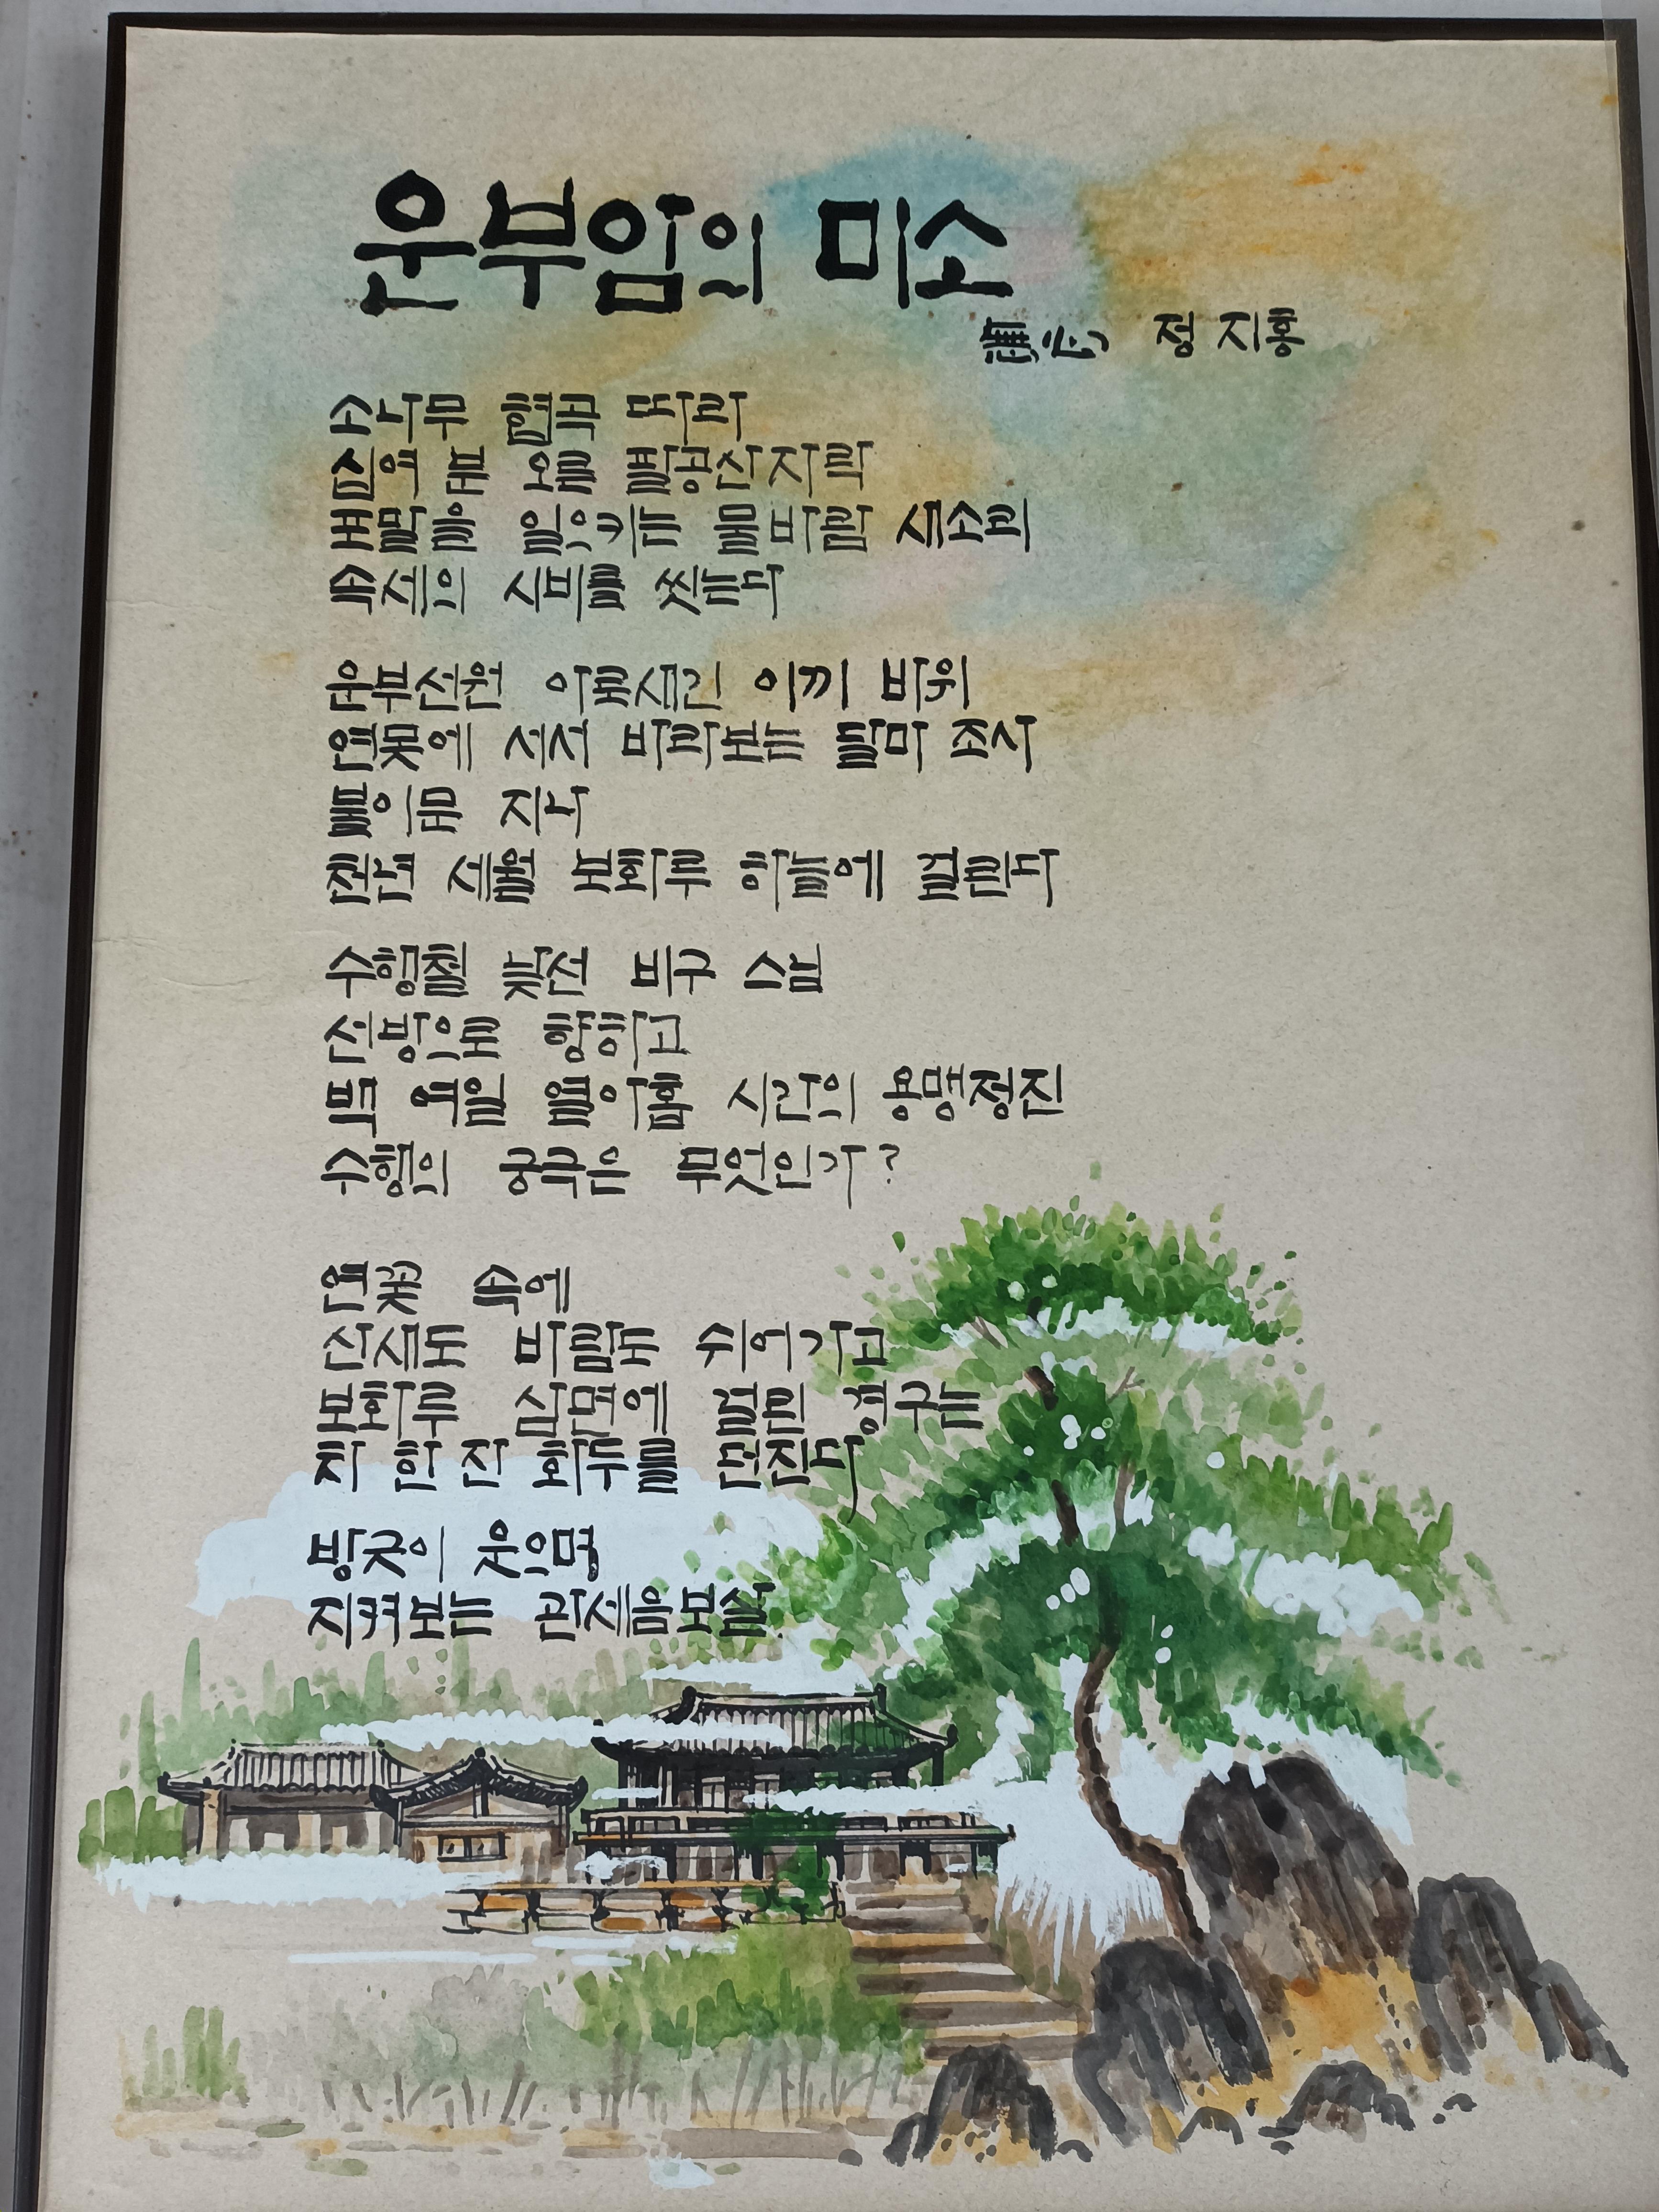 운부암의 미소
無 정 지홍
소나무 협곡 따라
오를 팔공산자락
일으키는 물바람 새소리
속세의 시비를 씻는다
운부선원 아로새긴 이끼 바위
연못에 서서 바라보는 달마 조사
불이문 지나
천년 세월 보화루 하늘에 걸린다
수행철 낯선 비구 스님
선방으로 향하고
백 여일 열아홉 시간의 용맹정진
수행의 궁극은 무엇인가?
연꽃 속에
산새도 바람도 쉬어가고
보화루 걸린 경구는
차 한 잔 화두를 던진다
방긋이 웃으며
지켜보는 관세음보살.